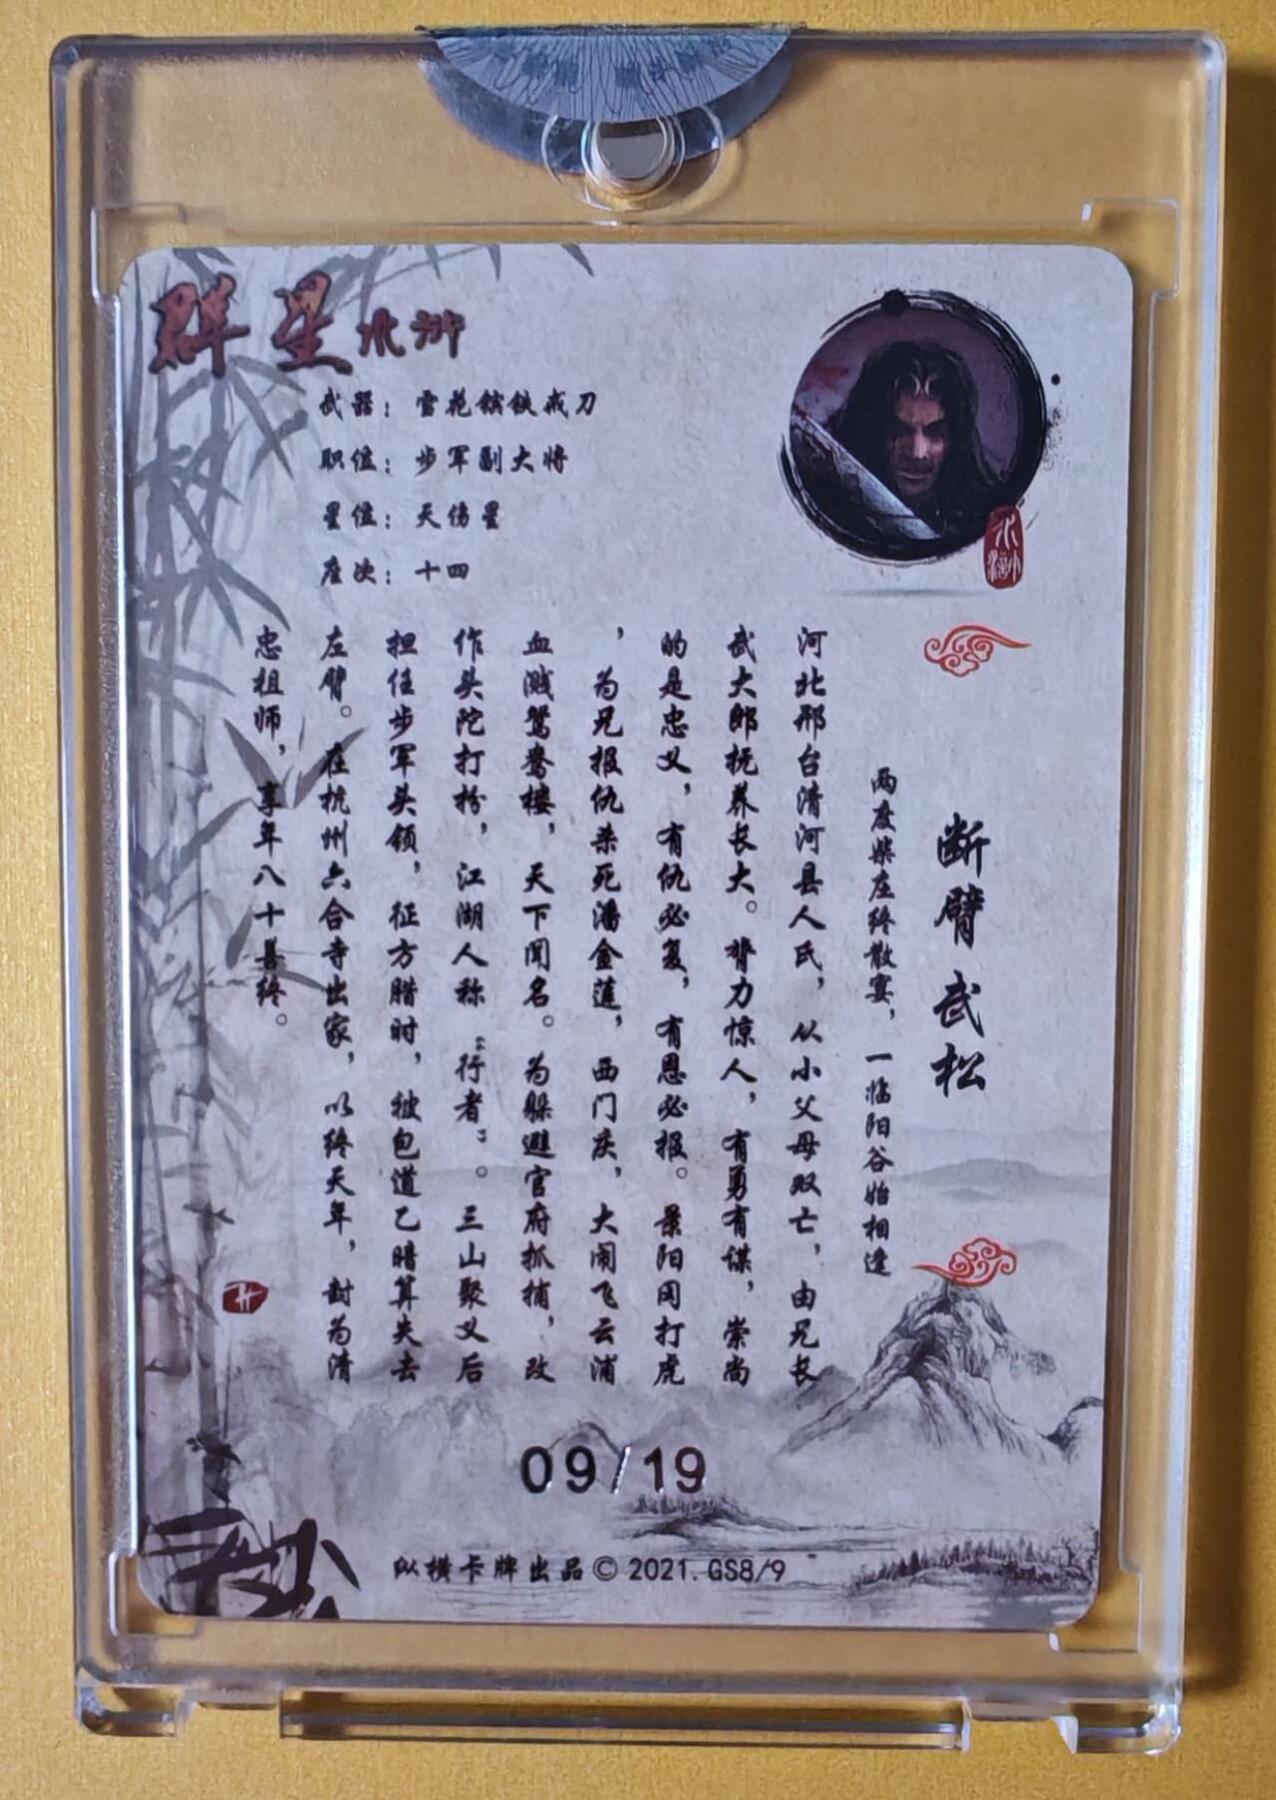 群星水浒
武器：雪花镔铁戒刀
职位：步军副大将
星位：天伤星
座次：十四
水浒
断臂武松
两度柴庄终散宴，一临阳谷始相逢
河北邢台清河县人氏，从小父母双亡，由兄长
武大郎抚养长大。膂力惊人，有勇有谋，崇尚
的是忠义，有仇必复，有恩必报。景阳冈打虎
，为兄报仇杀死潘金莲，西门庆，大闹飞云浦
血溅鸳鸯楼，天下闻名。为躲避官府抓捕，改
作头陀打扮，江湖人称“行者”。三山聚义后
担任步军头领，征方腊时，被包道乙暗算失去
左臂。在杭州六合寺出家，以终天年，封为清
忠祖师，享年八十善终。
09/19
纵横卡牌出品©2021.GS8/9